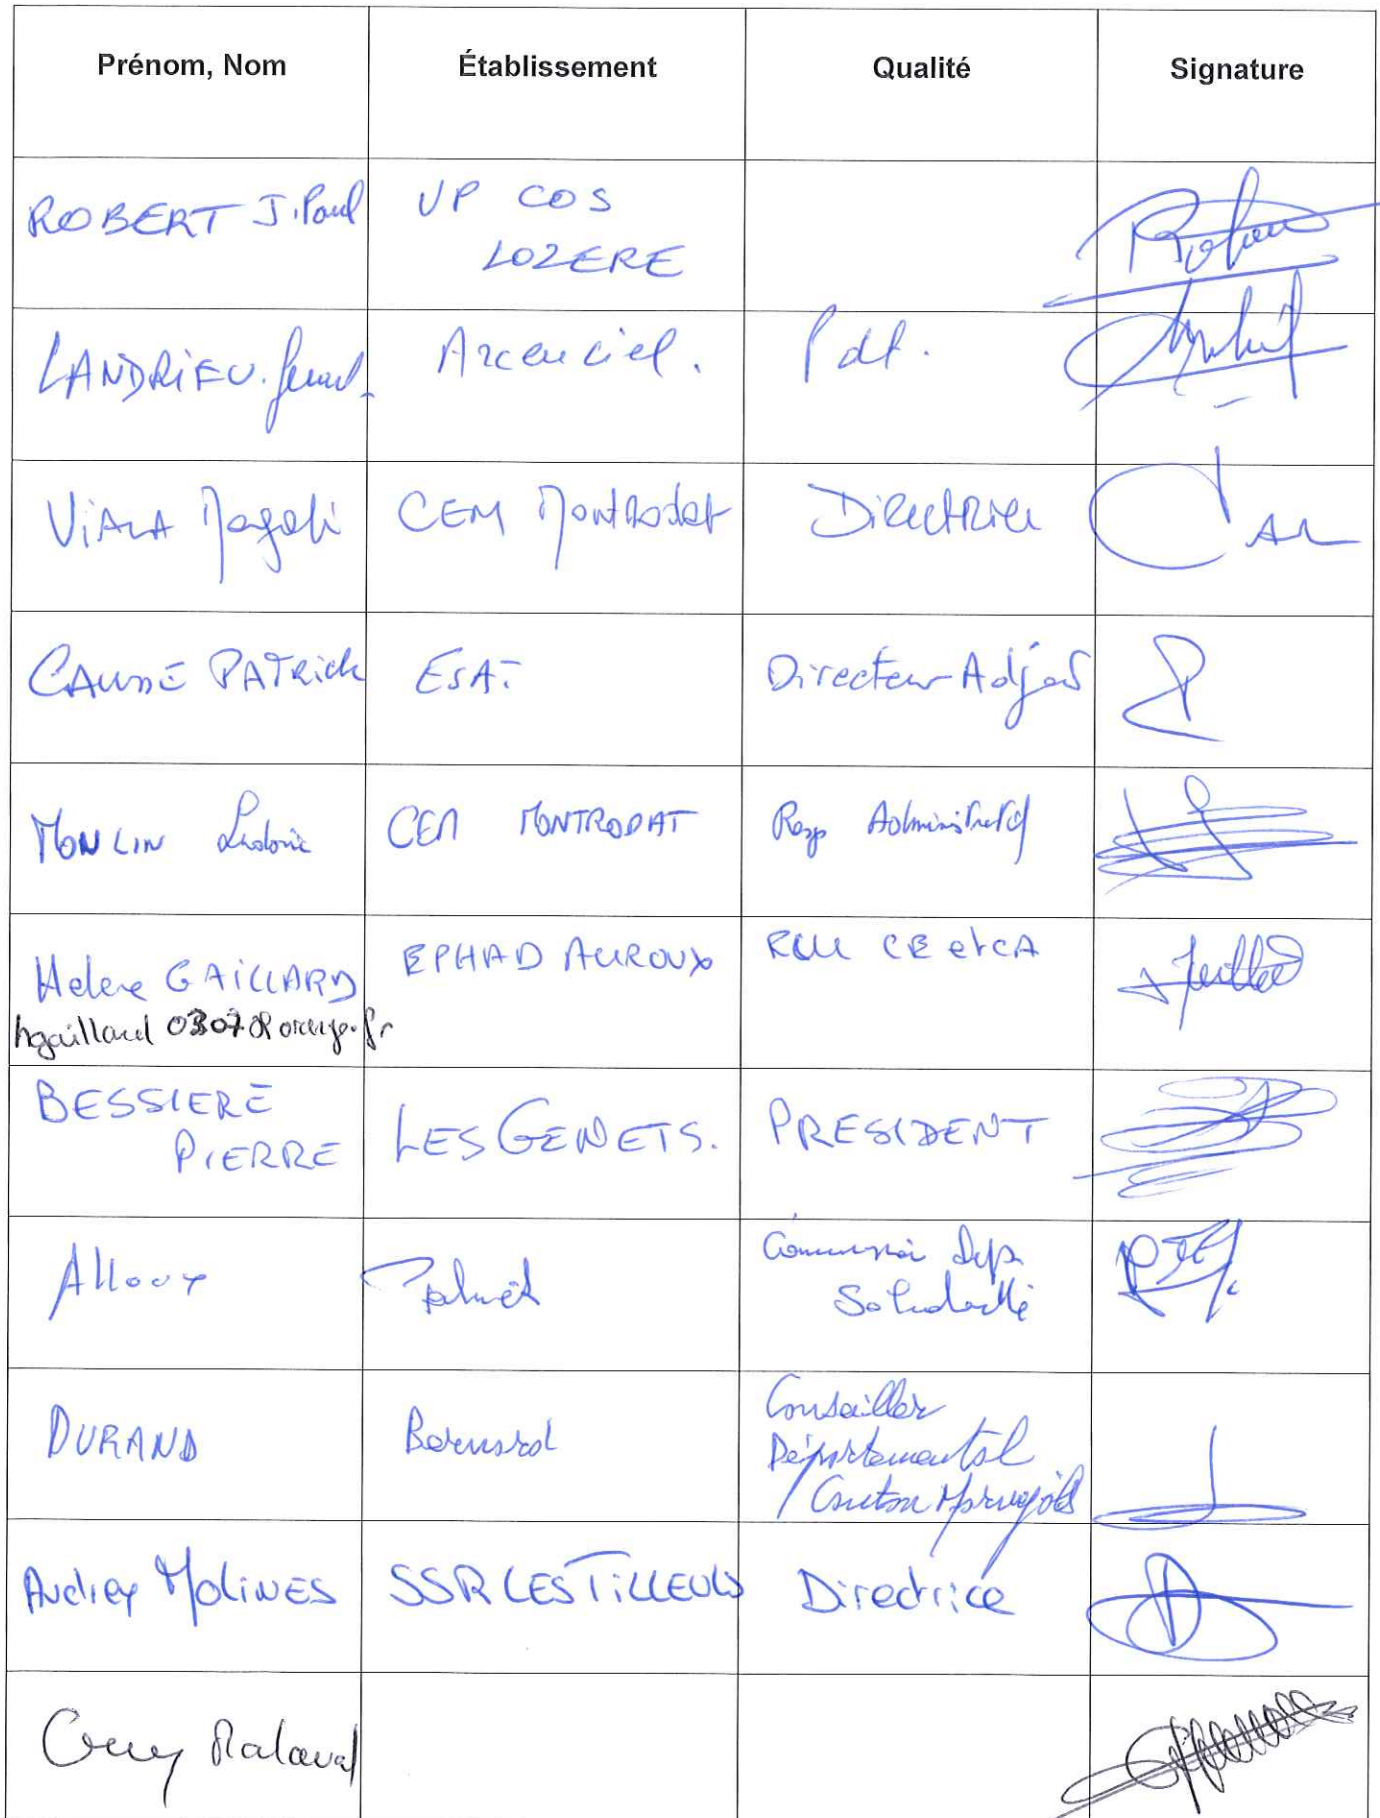 Prénom, Nom Établissement Qualité Signature
ROBERT J. Paul UP COS
LOZERE
LANDRIEU Arc en ciel. Pdt.
ViALA Magali CEM Montrodat Directrice
CAUSSE PATRick ESAT Directeur Adjoint
MOULIN Ludovic CEM MONTRODAT Resp Administratif
Helene GAILLARD EPHAD AUROUX CE et CA
hgaillard 0307@orange.fr
BESSIERE
PIERRE LES GENETS. PRESIDENT
Alloux
Solidarité
DURAND Bernard Conseiller
Départemental
Canton Marvejols
Audrey MOLINES SSR LES TILLEULS Directrice
Guy Malaval